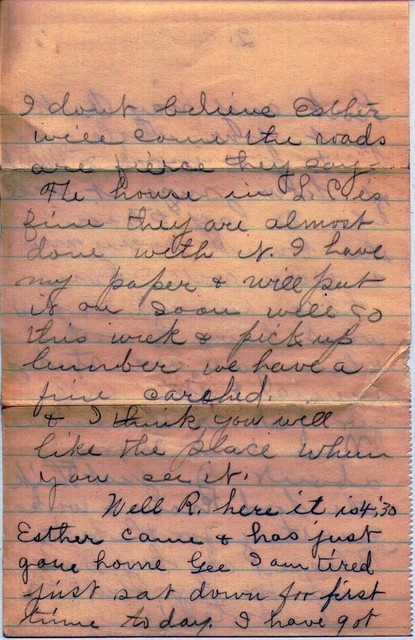 I dont believe Esther
will come the roads
are fierce they say.
The house in L. C. is
fine they are almost
done with it. I have
my paper & will put
it on soon will go
this week & pick up
lumber we have a
fine carshed.
& I think you will
like the place when
you see it.
Well R. here it is 4:30
Esther came & has just
gone home Gee I am tired
just sat down for first
time today. I have got